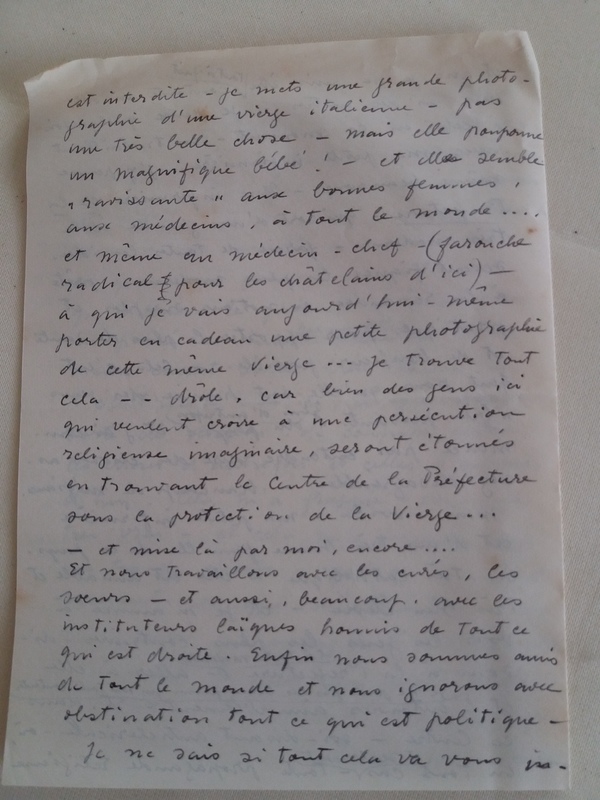 est interdite - je mets une grande photo-
graphie d'une vierge italienne - pas
une très belle chose - mais elle pouponne
un magnifique bébé ! - et elle semble
"ravissante" aux bonnes femmes,
aux médecins, à tout le monde ....
et même au médecin-chef - (farouche
radical pour les châtelains d'ici) -
à qui je vais aujourd'hui-même
porter en cadeau une petite photographie
de cette même Vierge ... Je trouve tout
cela -- drôle, car bien des gens ici
qui veulent croire à une persécution
religieuse imaginaire, seront étonnés
en trouvant le Centre de la Préfecture
sous la protection de la Vierge ...
- et mise là par moi, encore ....
Et nous travaillons avec les curés, les
soeurs - et aussi, beaucoup, avec les
instituteurs laïques honnis de tout ce
qui est droite. Enfin nous sommes amis
de tout le monde et nous ignorons avec
obstination tout ce qui est politique -
Je ne sais si tout cela va vous in-